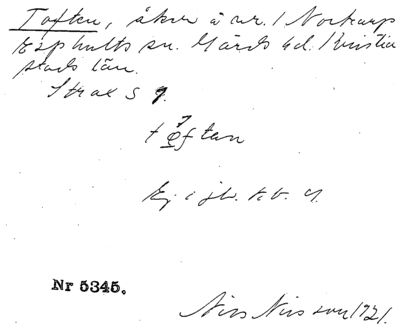 Toften, åker å nr. 1 Norkarp
Esphults sn. Gärds hd. Kristian
stads län.
Strax S g.
tǫftan
Ej i jb. k.b. g.
Nr 5345.
Nils Nilsson 1921.